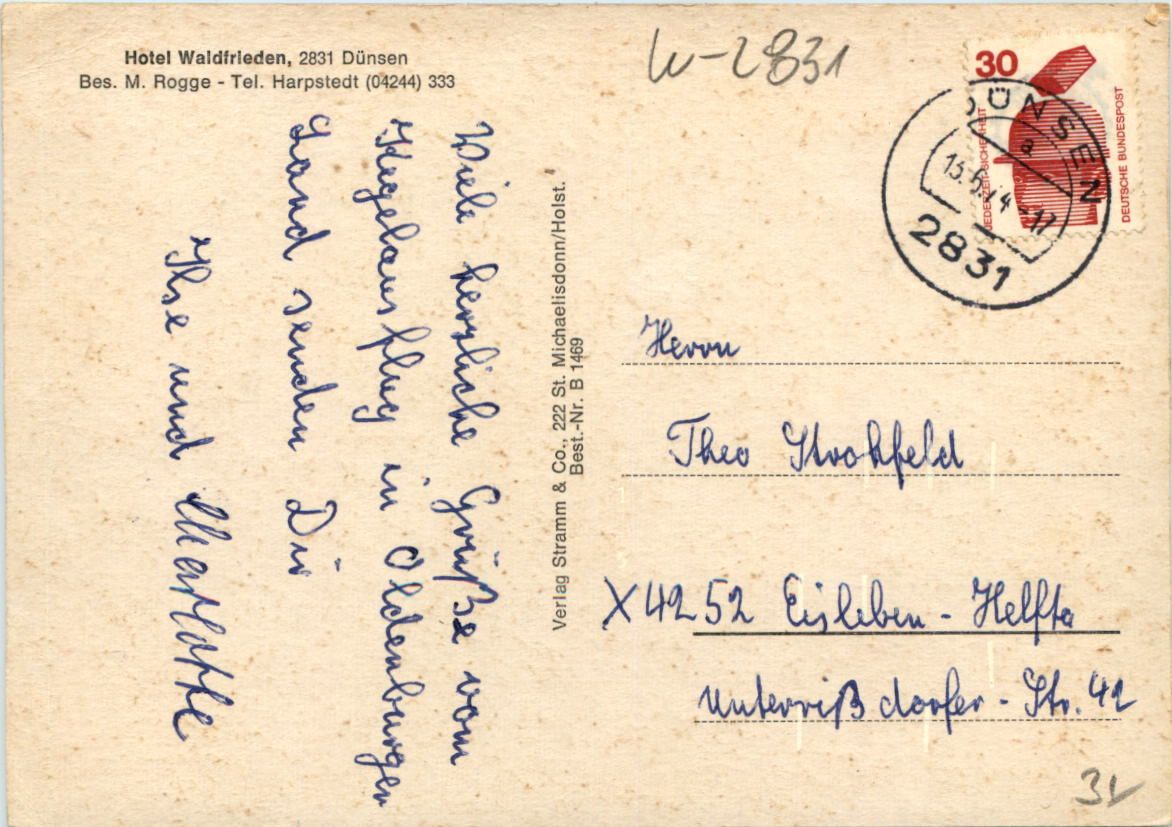 Hotel Waldfrieden, 2831 Dünsen
Bes. M. Rogge - Tel. Harpstedt (04244) 333
W-2831
30
JEDERZEIT SICHERHEIT
DEUTSCHE BUNDESPOST
DÜNSEN
a
13.6.74-17
2831
Viele herzliche Grüße vom
Kegelausflug in Oldenburger
Land senden Dir
Ilse und
Verlag Stramm & Co., 222 St. Michaelisdonn/Holst.
Best.-Nr. B 1469
Herrn
Theo Strohfeld
X4252 Eisleben - Helfta
Unterrißdorfer - Str. 42